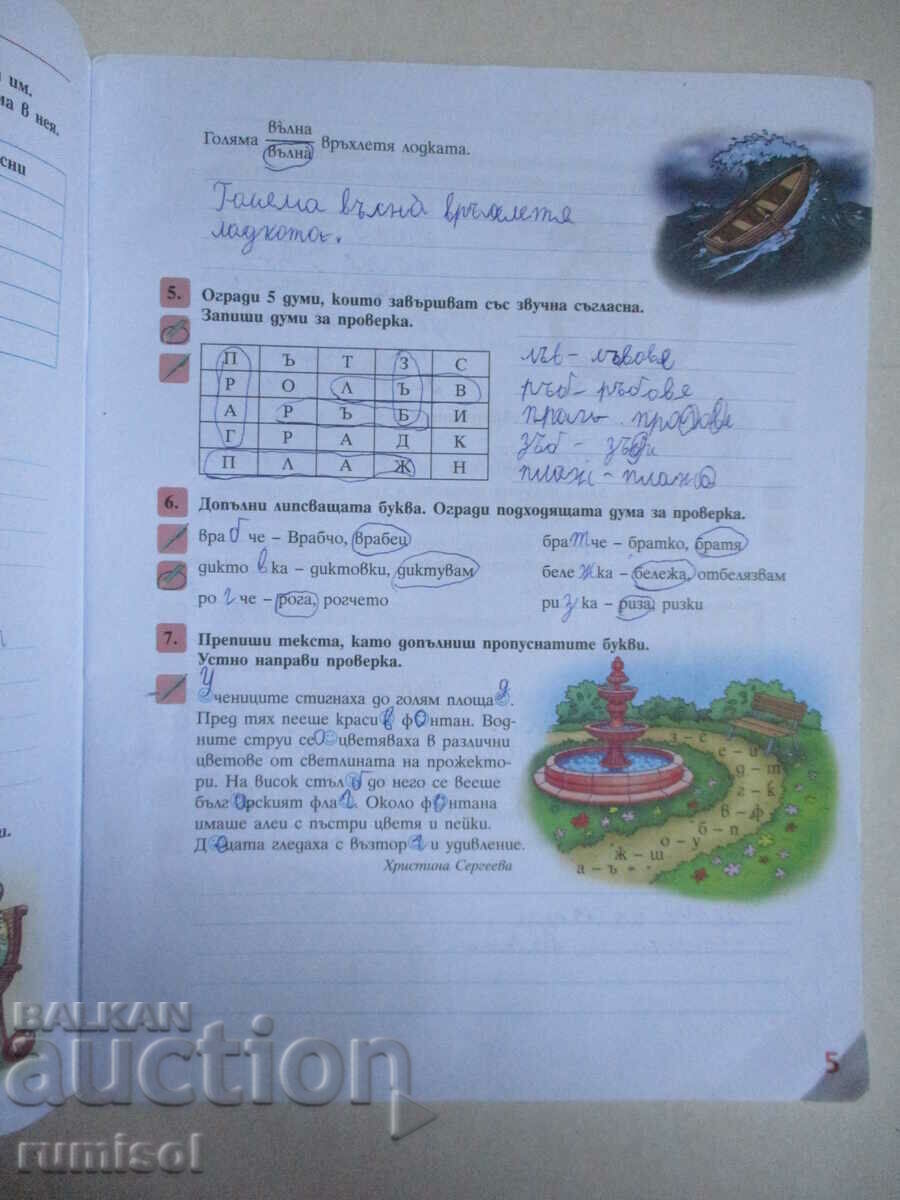 им.
ма в нея.
сни
вълна
Голяма вълна връхлетя лодката.
вълна връхлетя
5. Огради 5 думи, които завършват със звучна съгласна.
Запиши думи за проверка.
П Ъ Т З С
Р О Л Ъ В
А Р Ъ Б И
Г Р А Д К
П Л А Ж Н
лъв - лъвове
ръб - ръбове
зъб -
плаж -
6. Допълни липсващата буква. Огради подходящата дума за проверка.
вра б че – Врабчо, врабец
бра т че – братко, братя
дикто в ка – диктовки, диктувам
беле ж ка – бележа, отбелязвам
ро г че – рога, рогчето
ри з ка – риза, ризки
7. Препиши текста, като допълниш пропуснатите букви.
Устно направи проверка.
Учениците стигнаха до голям площад.
Пред тях пееше красив фонтан. Вод-
ните струи се оцветяваха в различни
цветове от светлината на прожекто-
ри. На висок стълб до него се вееше
българският флаг. Около фонтана
имаше алеи с пъстри цветя и пейки.
Децата гледаха с възторг и удивление.
Христина Сергеева
з – с
е – и
д – т
г – к
в – ф
б – п
о – у
ж – ш
а – ъ
5
BALKAN
auction
rumisol